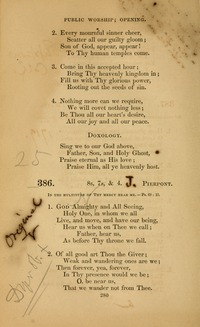 PUBLIC WORSHIP; OPENING.
2. Every mournful sinner cheer,
Scatter all our guilty gloom;
Son of God, appear, appear!
To Thy human temples come.
3. Come in this accepted hour;
Bring Thy heavenly kingdom in;
Fill us with Thy glorious power,
Rooting out the seeds of sin.
4. Nothing more can we require,
We will covet nothing less;
Be Thou all our heart's desire,
All our joy and all our peace.
DOXOLOGY.
Sing we to our God above,
Father, Son, and Holy Ghost,
Praise eternal as His love;
Praise Him, all ye heavenly host.
25
386. 8s, 7s, & 4. J. PIERPONT.
IN THE MULTITUDE OF THY MERCY HEAR ME.—
1. GOD Almighty and All Seeing,
Holy One, in whom we all
Live, and move, and have our being,
Hear us when on Thee we call;
Father, hear us,
As before Thy throne we fall.
Original
2. Of all good art Thou the Giver;
Weak and wandering ones are we;
Then forever, yea, forever,
In Thy presence would we be;
O, be near us,
That we wander not from Thee.